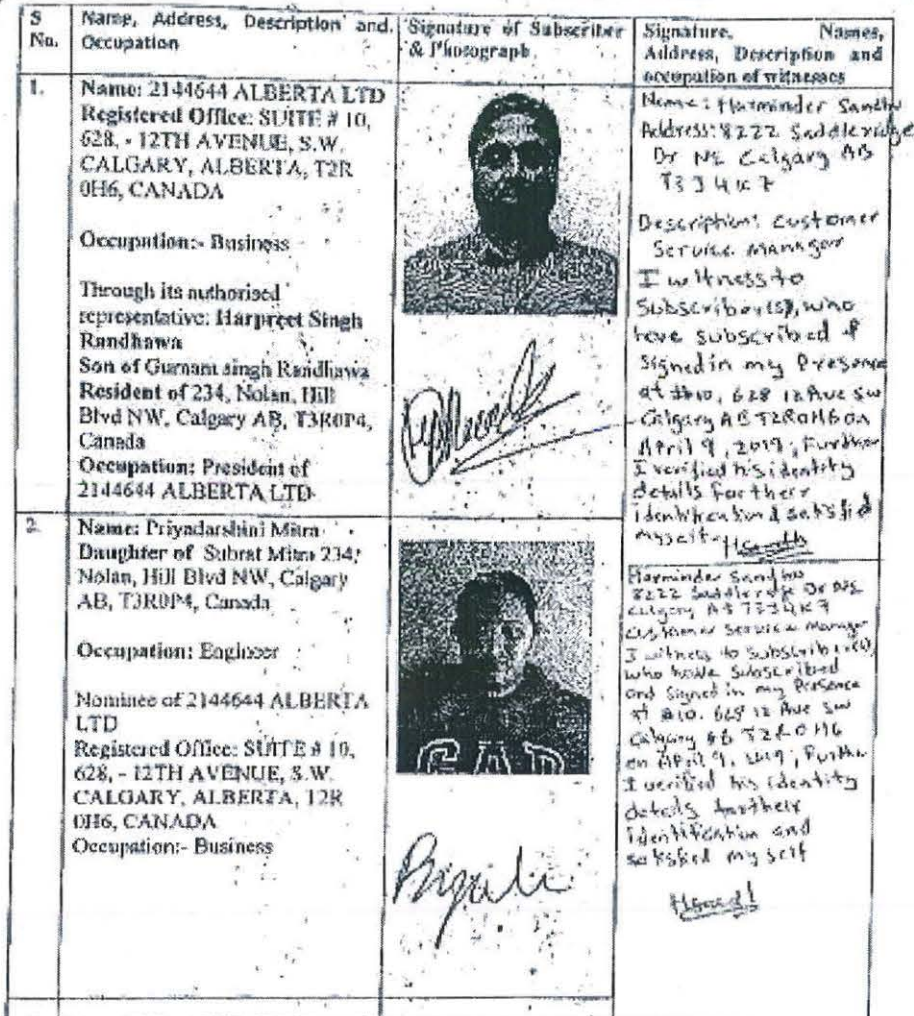 S No.
Name, Address, Description and Occupation
Signature of Subscriber & Photograph
Signature, Names, Address, Description and occupation of witnesses
1.
Name: 2144644 ALBERTA LTD
Registered Office: SUITE # 10,
628, - 12TH AVENUE, S.W.
CALGARY, ALBERTA, T2R
0H6, CANADA
Occupation:- Business
Through its authorised
representative: Harpreet Singh
Randhawa
Son of Gurnam singh Randhawa
Resident of 234, Nolan, Hill
Blvd NW, Calgary AB, T3R0P4,
Canada
Occupation: President of
2144644 ALBERTA LTD
Name: Harminder Sandhu
Address: 8222 Saddleridge
Dr NE Calgary AB
T3J 4K7
Description: Customer
Service Manager
I witness to
Subscriber(s), who
have subscribed &
Signed in my Presence
at #10, 628 12 Ave SW
Calgary AB T2R0H6 on
April 9, 2019; Further
I verified his identity
details for their
identification & satisfied
myself
2.
Name: Priyadarshini Mitra
Daughter of Subrat Mitra 234,
Nolan, Hill Blvd NW, Calgary
AB, T3R0P4, Canada
Occupation: Engineer
Nominee of 2144644 ALBERTA
LTD
Registered Office: SUITE # 10,
628, - 12TH AVENUE, S.W.
CALGARY, ALBERTA, T2R
0H6, CANADA
Occupation:- Business
GAP
Harminder Sandhu
8222 Saddleridge Dr NE
Calgary AB T3J4K7
Customer Service Manager
I witness to Subscriber(s),
who have subscribed
and Signed in my Presence
at #10, 628 12 Ave SW
Calgary AB T2R0H6
on April 9, 2019; Further
I verified his identity
details for their
identification and
satisfied myself